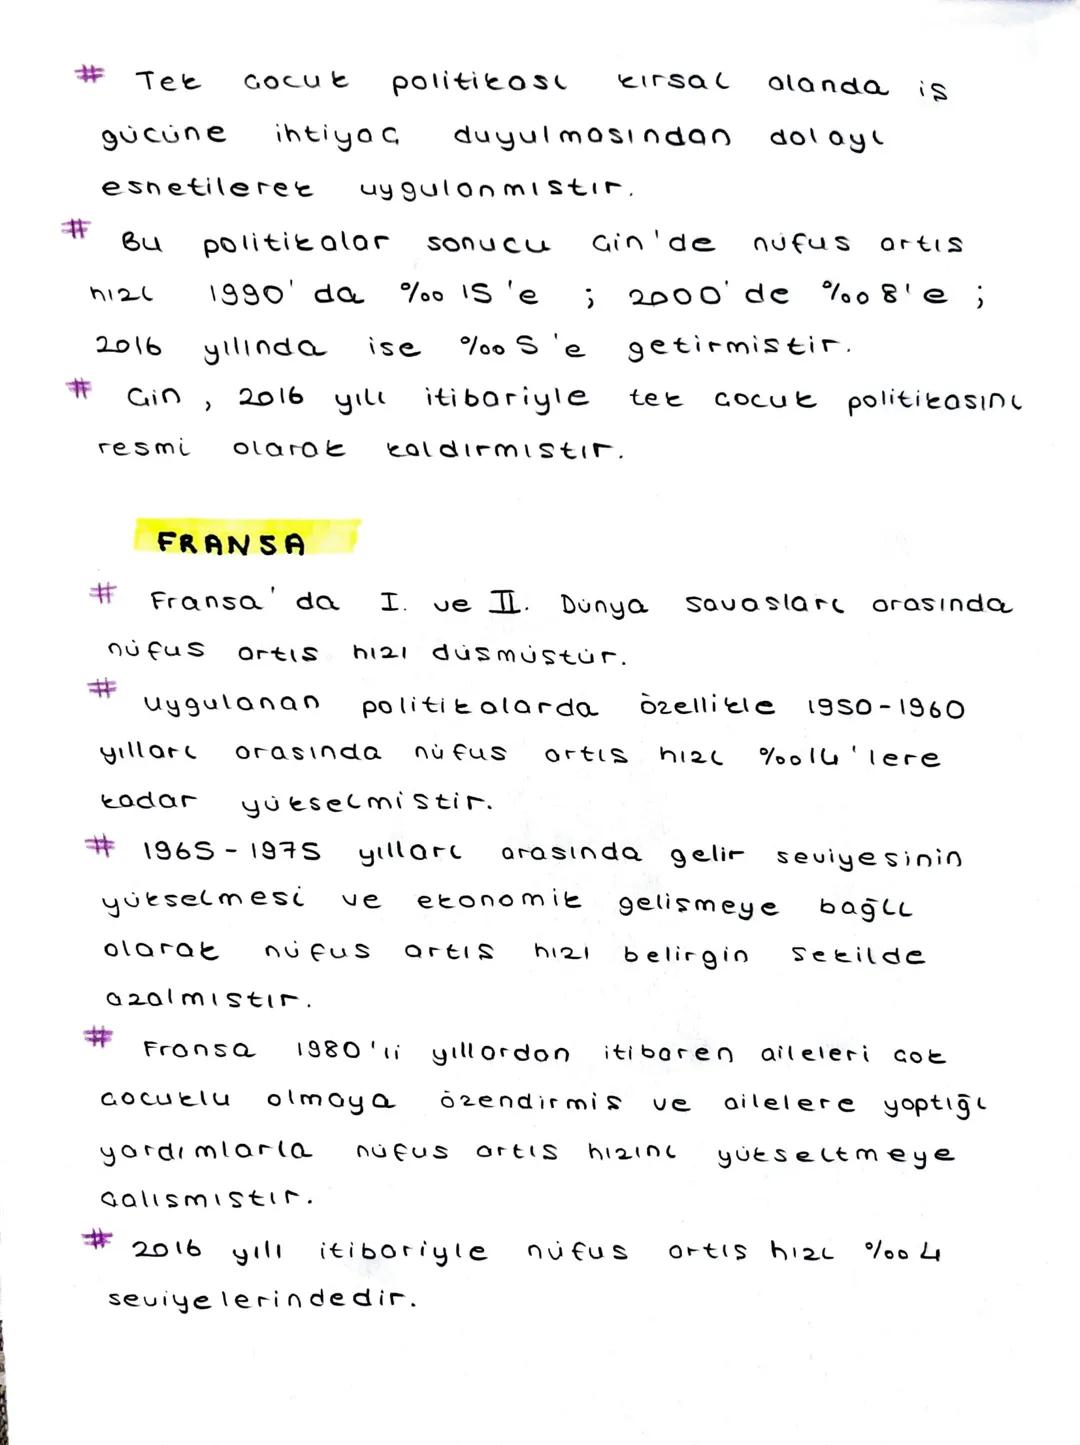 # Tek çocuk politikası kırsal alanda iş
gücüne ihtiyaç duyulmasından dolayı
esnetilerek uygulanmıştır.
# Bu politikalar sonucu Çin'de nüfus artış
hızı 1990'da ‰ 15'e ; 2000'de ‰ 8'e ;
2016 yılında ise ‰ 5'e getirmiştir.
# Çin, 2016 yılı itibariyle tek çocuk politikasını
resmi olarak kaldırmıştır.
FRANSA
# Fransa'da I. ve II. Dünya savaşları arasında
nüfus artış hızı düşmüştür.
# Uygulanan politikalarda özellikle 1950-1960
yılları arasında nüfus artış hızı ‰14'lere
kadar yükselmiştir.
# 1965-1975 yılları arasında gelir seviyesinin
yükselmesi ve ekonomik gelişmeye bağlı
olarak nüfus artış hızı belirgin şekilde
azalmıştır.
# Fransa 1980'li yıllardan itibaren aileleri çok
çocuklu olmaya özendirmiş ve ailelere yaptığı
yardımlarla nüfus artış hızını yükseltmeye
çalışmıştır.
# 2016 yılı itibariyle nüfus artış hızı ‰ 4
seviyelerindedir.